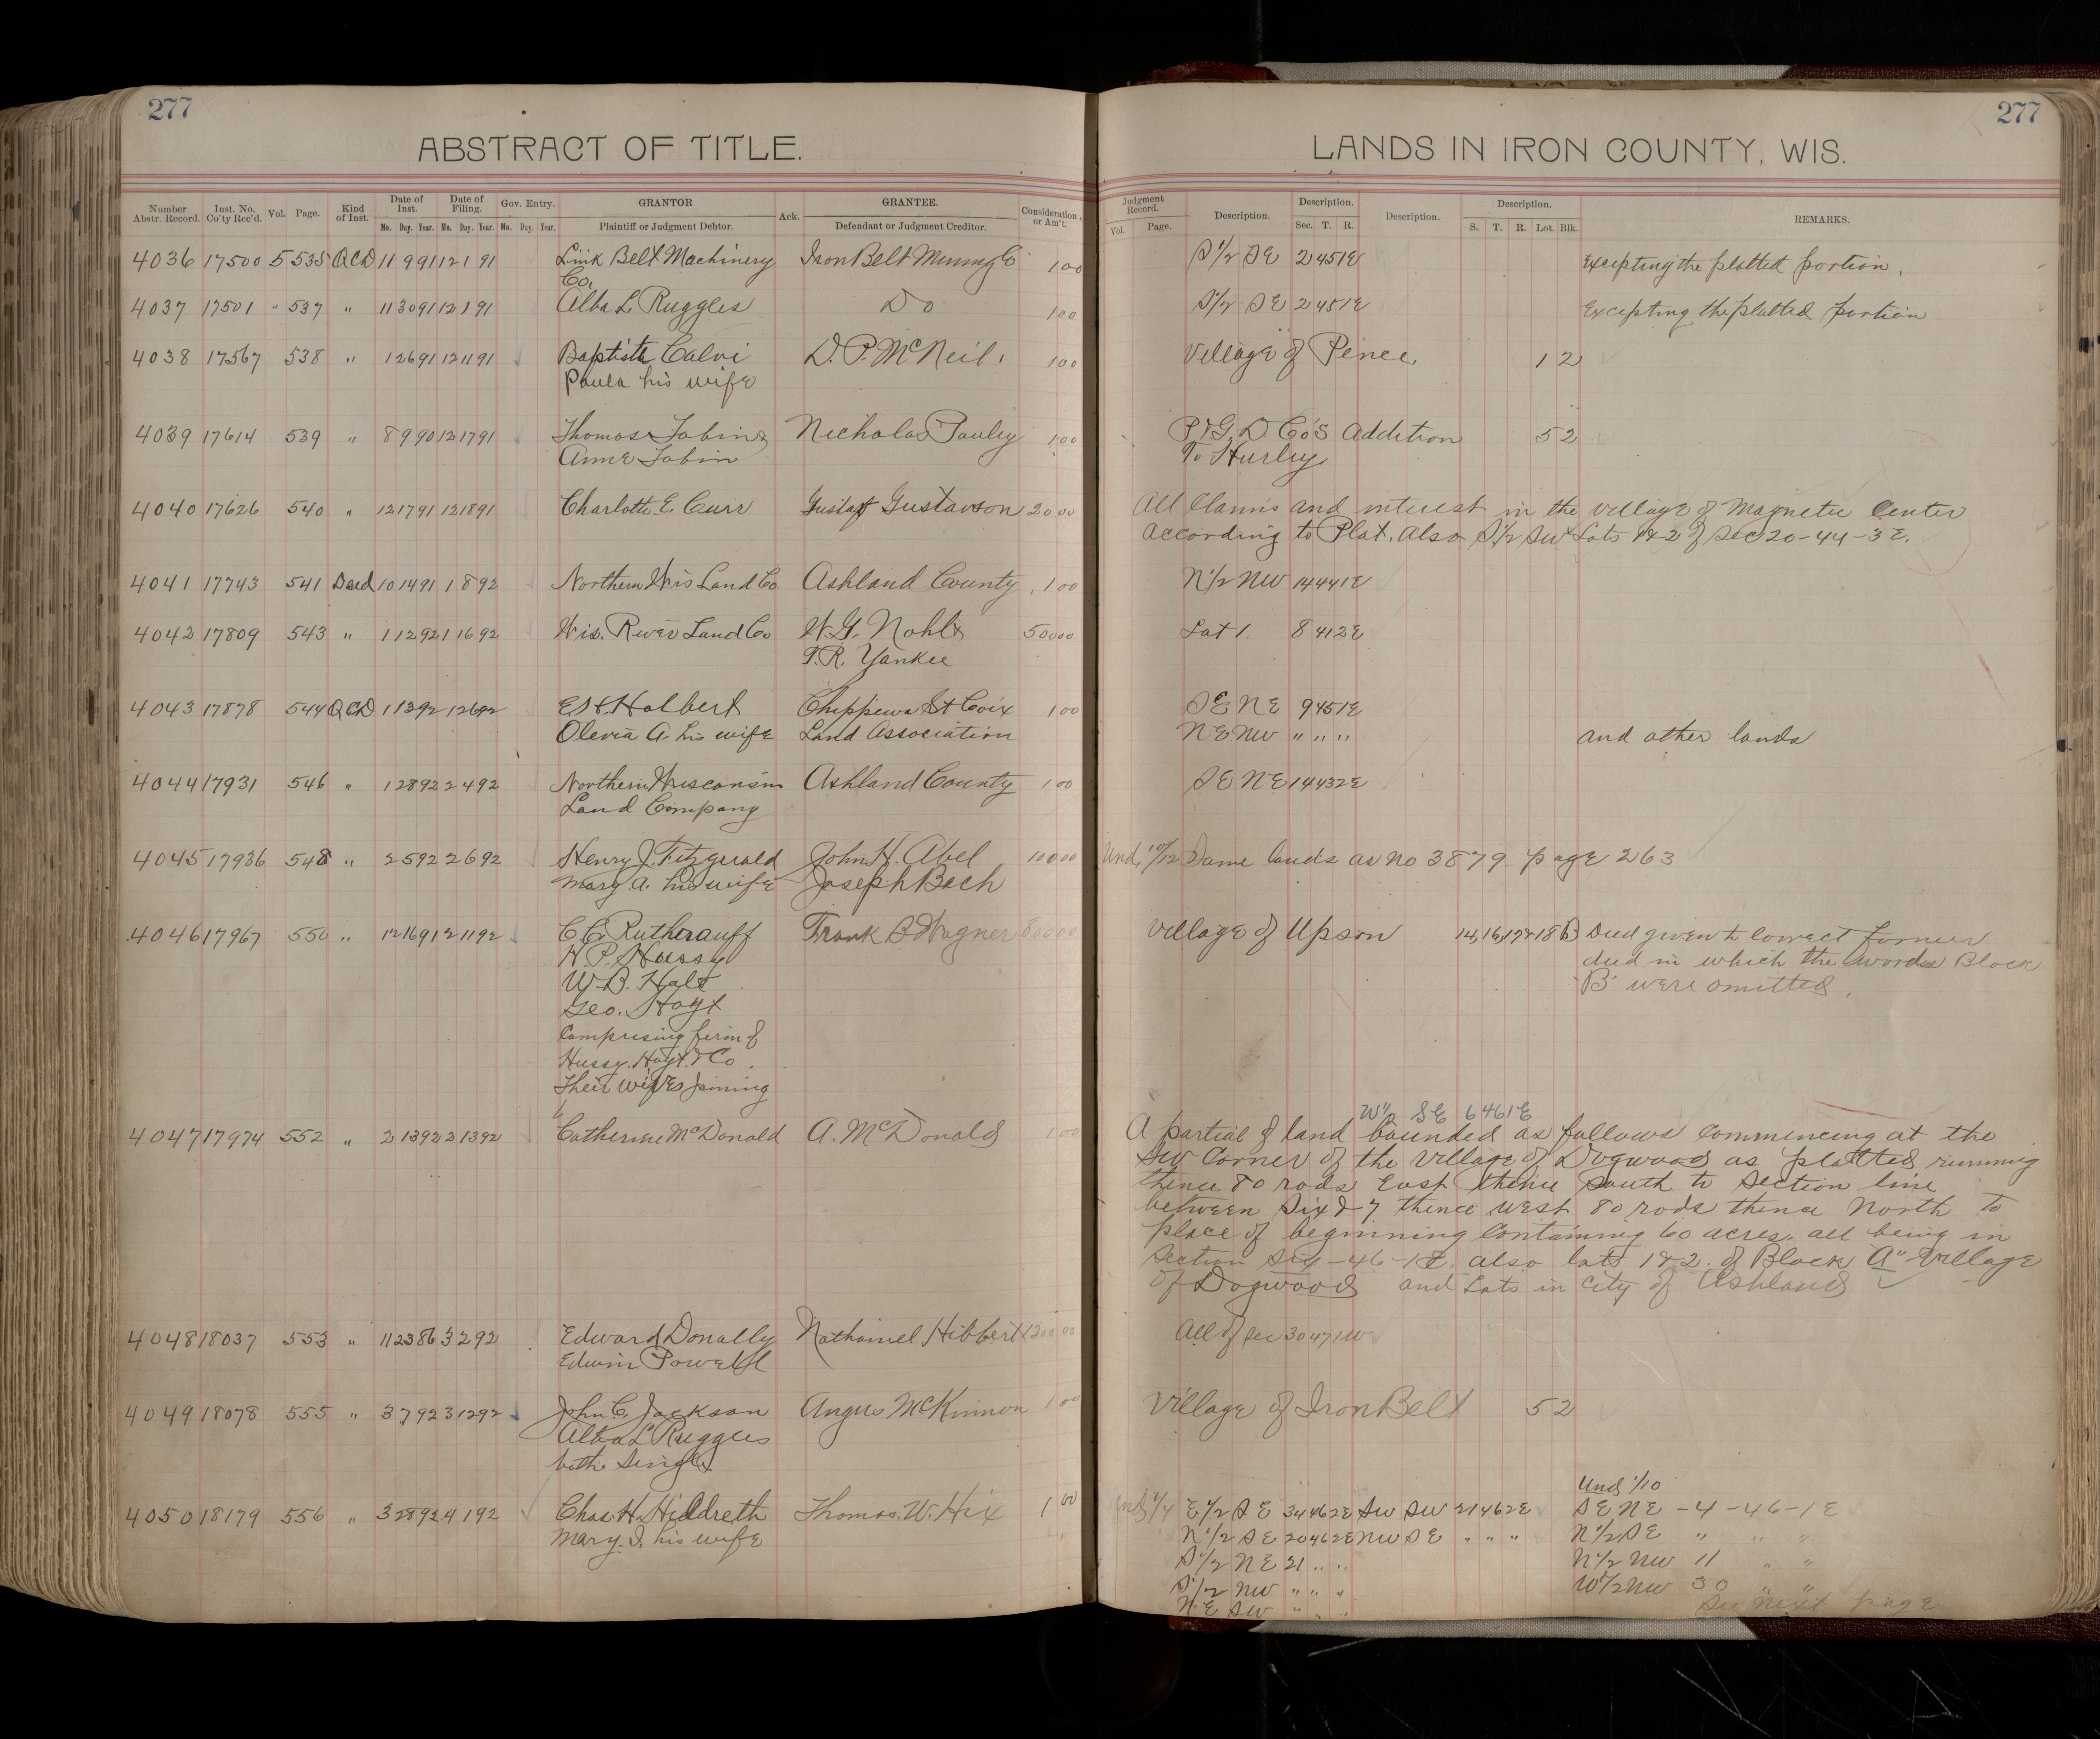 277
277
ABSTRACT OF TITLE.
LANDS IN IRON COUNTY, WIS.
Number Abstr. Record. Inst. No. Co'ty Rec'd. Vol. Page. Kind of Inst. Date of Inst. Mo. Day. Year. Date of Filing. Mo. Day. Year. Gov. Entry. Mo. Day. Year. GRANTOR Plaintiff or Judgment Debtor. Ack. GRANTEE. Defendant or Judgment Creditor. Consideration or Am't.
Judgment Record. Vol. Page. Description. Description. Sec. T. R. Description. Description. S. T. R. Lot. Blk. REMARKS.
4036 17500 5 535 QCD 11 9 91 12 1 91 Link Belt Machinery Iron Belt Mining Co 1 00 S 1/2 SE 2 45 1E Excepting the platted portion.
Co.
4037 17501 " 537 " 11 30 91 12 1 91 Alba L. Ruggles Do 1 00 S 1/2 SE 2 45 1E Excepting the platted portion
4038 17567 538 " 12 6 91 12 11 91 Baptiste Calvi D. P. McNeil. 1 00 Village of Pence. 1 2
Paula his wife
4039 17614 539 " 8 9 90 12 17 91 Thomas Tobin & Nicholas Pauley 1 00 P & G. D Co's Addition 5 2
Anne Tobin To Hurley
4040 17626 540 " 12 17 91 12 18 91 Charlotte E. Curr Gustaf Gustavson 20 00 All Claims and interest in the village of Magnetic Center
according to Plat. also S 1/2 SW Lots 1 & 2 of Sec 20-44-3E.
4041 17743 541 Deed 10 14 91 1 8 92 Northern Wis Land Co Ashland County 1 00 N 1/2 NW 14 44 1E
4042 17809 543 " 1 12 92 1 16 92 Wis. River Land Co W. G. Nohls 500 00 Lot 1. 8 41 2E
T. R. Yankee
4043 17878 544 QCD 1 13 92 1 26 92 E H Holbert Chippewa & St Coix 1 00 SE NE 9 45 1E
Olevia A. his wife Land Association NE NW " " " and other lands
4044 17931 546 " 1 28 92 2 4 92 Northern Wisconsin Ashland County 1 00 SE NE 14 43 2E
Land Company
4045 17936 548 " 2 5 92 2 6 92 Henry J. Fitzgerald John H. Abel 100 00 Und. 10/12 Same lands as No 3879 page 263
Mary A. his wife Joseph Bach
4046 17967 550 " 12 16 91 2 11 92 C. E. Rutherauff Frank B Wagner 800 00 Village of Upson 14,16,17&18 B Deed given to correct former
H. P. Hussy deed in which the words Block
W. B. Holt B were omitted.
Geo. Hoyt
Comprising firm of
Hussy. Hoyt & Co.
Their wives Joining
W" SE 6 46 1E
4047 17974 552 " 2 13 92 2 13 92 Catherine McDonald A. McDonald 1 00 A partial of land bounded as follows commencing at the
SW Corner of the Village of Dogwood as platted running
thence 80 rods East thence South to Section line
between Six & 7 thence west 80 rods thence North to
place of beginning Containing 60 acres. all being in
Section Six-46-1E. also lots 1 & 2. of Block A" Village
of Dogwood and Lots in City of Ashland
4048 18037 553 " 11 23 86 3 2 92 Edward Donally Nathaniel Hibbert 1200 00 All of sec 30 47 1W
Edwin Powell
4049 18078 555 " 3 7 92 3 12 92 John C. Jackson Angus McKinnon 1 00 Village of Iron Belt 5 2
Alba L Ruggles
both Single
Und 1/10
4050 18179 556 " 3 28 92 4 1 92 Chas. H. Hildreth Thomas. W. Hix 1 00 Und 1/4 E 1/2 SE 34 46 2E SW SW 21 46 2E SE NE -4-46-1E
Mary. I. his wife N 1/2 SE 20 46 2E NW SE " " " N 1/2 SE " " "
S 1/2 NE 21 " " N 1/2 NW 11 " "
S 1/2 NW " " " W 1/2 NW 30 " "
N E SW " " " See Next page